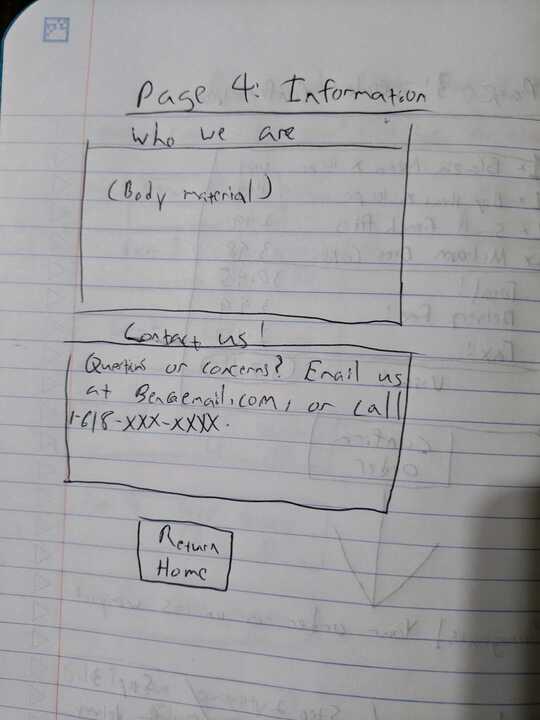 Page 4: Information
Who we are
(Body material)
Contact us!
Questions or concerns? Email us
at Ben@email.com, or call
1-618-XXX-XXXX.
Return
Home